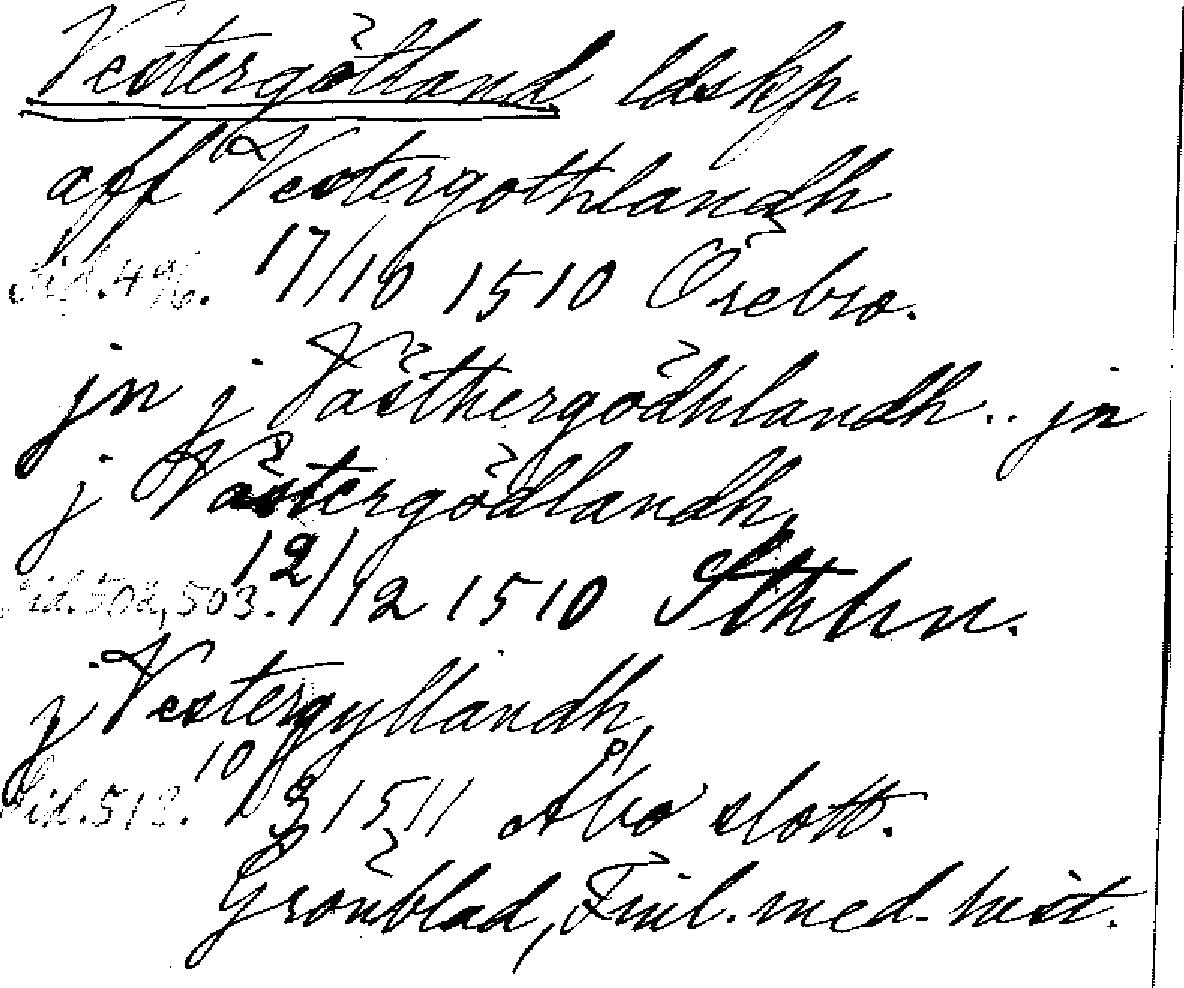 Vestergötland ldskp.
aff Vestergothlandh
Sid. 496. 17/10 1510 Örebro.
jn j Västhergödhlandh .. jn
j Västergödlandh,
Sid. 502, 503. 12/12 1510 Sthlm.
j Vestergyllandh,
Sid. 512. 10/3 1511 Åbo slott.
Grönblad, Finl. med. hist.